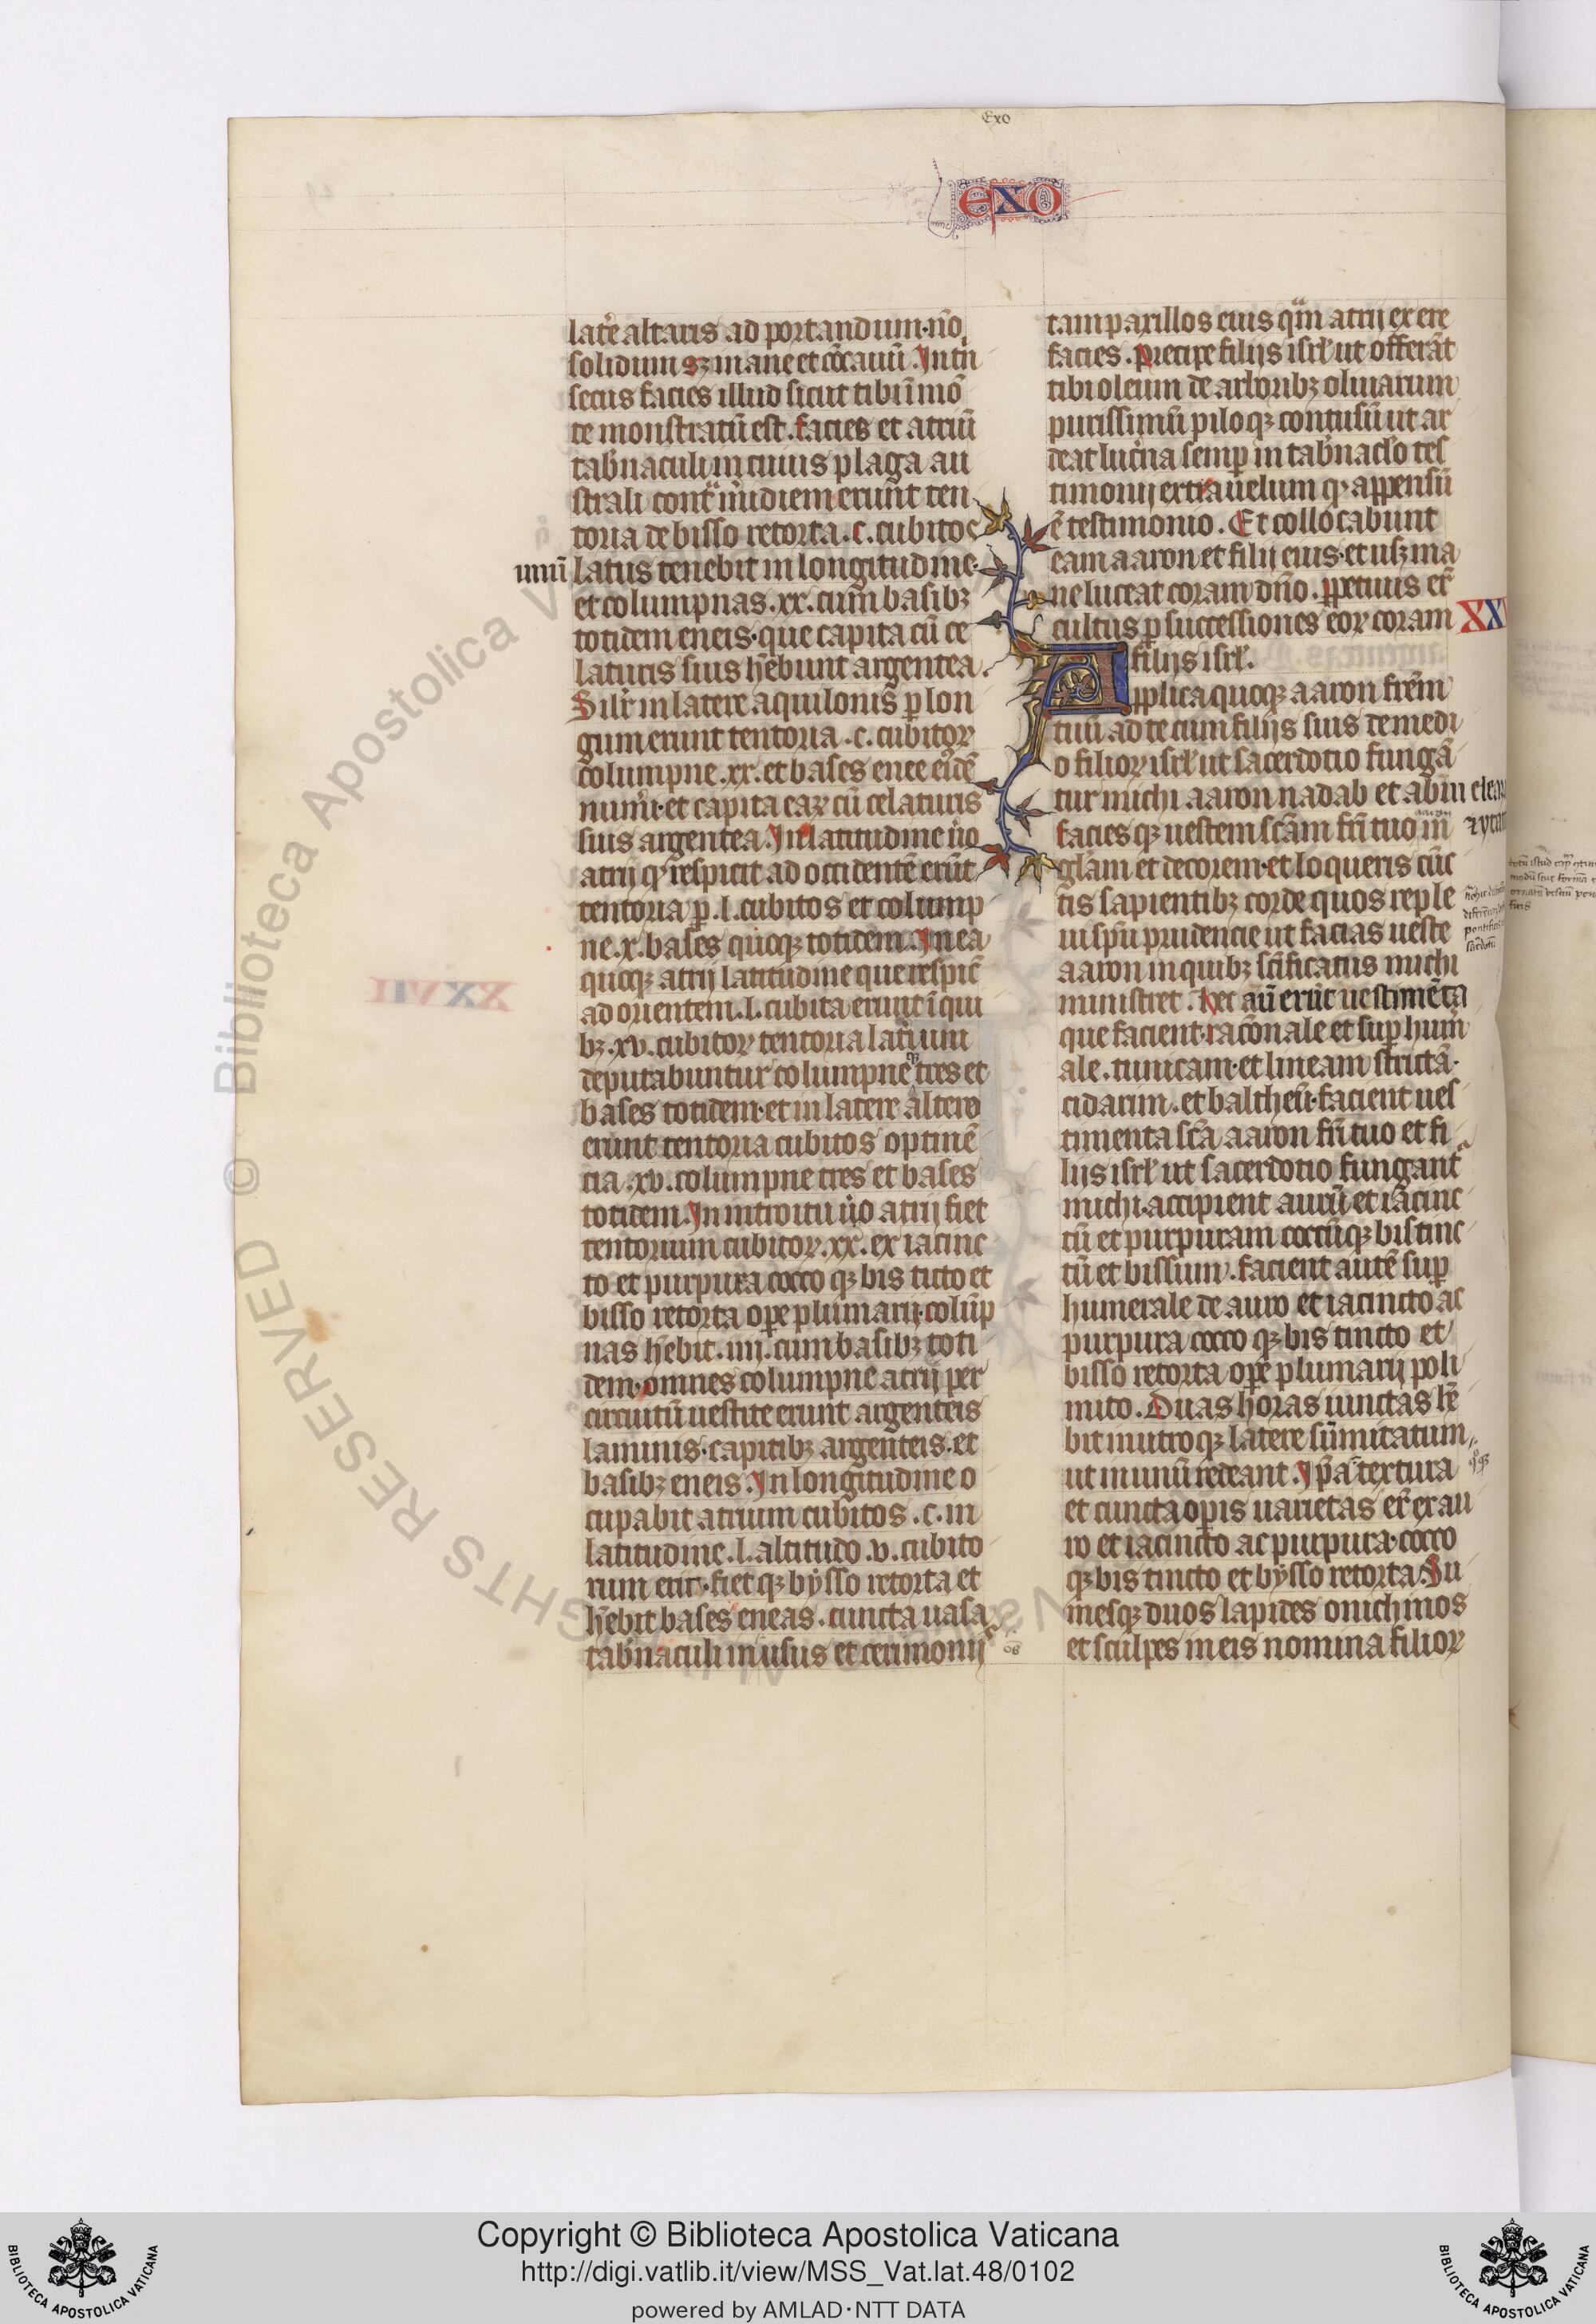 Exo
EXO
late᷑ altaris ad portandum·nō
solidum sꝫ inane et cōcauū. Intrī
secus facies illud sicut tibi ī mō
te monstratū est. facies et atriū
tabńaculi in cuius plaga au
strali cont̃ m̃idiem erunt ten
toria de bisso retorta .c. cubitos
unū latus tenebit in longitudine·
et columpnas .xx. cum basibꝫ
totidem eneis·que capita cū ce
laturis suis hēbunt argentea.
Silr̃ in latere aquilonis ꝑ lon
gum erunt tentoria .c. cubitoꝝ
columpne .xx. et bases enee eiᵈdē
num̃i·et capita eaꝝ cū celaturis
suis argentea. In latitudine ů̇o
atrij qͥ respicit ad occidentē erūt
tentoria ꝑ .l. cubitos et colump
ne .x. bases quoqꝫ totidem. In ea
quoqꝫ atrij latitudine que respic̄
ad orientem .l. cubita erunt ī qui
bꝫ .xv. cubitoꝝ tentoria lat̃i uni
deputabuntur columpne qꝫ tres et
bases totidem·et in latere altero
erunt tentoria cubitos optinē
cia .xv. columpne tres et bases
totidem. In introitu ůo atrij fiet
tentorium cubitoꝝ .xx. ex iacinc
to et purpura cocco qꝫ bis ticto et
bisso retorta oꝑe plumarij·colūp
nas hēbit .iiij. cum basibꝫ toti
dem·omnes columpne atrij per
circuitū uestite erunt argenteis
laminis·capitibꝫ argenteis·et
basibꝫ eneis. In longitudine o
cupabit atrium cubitos .c. in
latitudine .l. altitudo .v. cubito
rum erit·fiet qꝫ bysso retorta et
hēbit bases eneas. cuncta uasa
tabńaculi in usus et cerimonij
os
tam paxillos eius qᵃm atrij ex ere
facies. Precipe filijs isrł ut offerāt
tibi oleum de arboribꝫ oliuarum
purissimū pilo qꝫ contusū ut ar
deat lućna semꝑ in tabńaclo tes
timonij extra uelum qͩ appensū
ē testimonio. Et collocabunt
eam aaron et filij eius·et usꝫ ma
ne luceat coram dño. ꝑpetuus er̃
cultus ꝑ successiones eoꝝ coram
XX
filijs isrł.
Applica quoqꝫ aaron frēm
tuū ad te cum filijs suis de medi
o filioꝝ isrł ut sacerdotio fungā
tur michi aaron nadab et abiu elea
facies qꝫ uestem scām frī tuo in
aaron
ꝛ yta
glām et decorem·et loqueris cūc
tis sapientibꝫ corde quos reple
ui spū prudencie ut facias ueste
aaron in quibꝫ scīficatus michi
ministret. Hec aū erūt uestimēta
que facient·racōnale et suꝑ hum̃
ale. tunicam·et lineam strictā·
cidarim. et baltheū·facient ues
timenta scā aaron frī tuo et fi
lijs isrł ut sacerdotio fungant᷑
michi·accipient aurū et iacinc
tū et purpuram coccūqꝫ bis tinc
tū et bissum. facient autē suꝑ
humerale de auro et iacincto ac
purpura cocco qꝫ bis tincto et
bisso retorta oꝑe plumarij poli
mito. Duas horas iunctas hē
bit in utroqꝫ latere sūmitatum
ut in unū redeant. Ipā textura
et cuncta oꝑis uarietas er̃ ex au
ro et iacincto ac purpura·cocco
qꝫ bis tincto et bysso retorta. Su
mesqꝫ duos lapides onichinos
et sculpes in eis nomina filioꝝ
XXVII
© Biblioteca Apostolica Vaticana
RIGHTS RESERVED
BIBLIOTECA APOSTOLICA VATICANA
Copyright © Biblioteca Apostolica Vaticana
http://digi.vatlib.it/view/MSS_Vat.lat.48/0102
powered by AMLAD·NTT DATA
BIBLIOTECA APOSTOLICA VATICANA